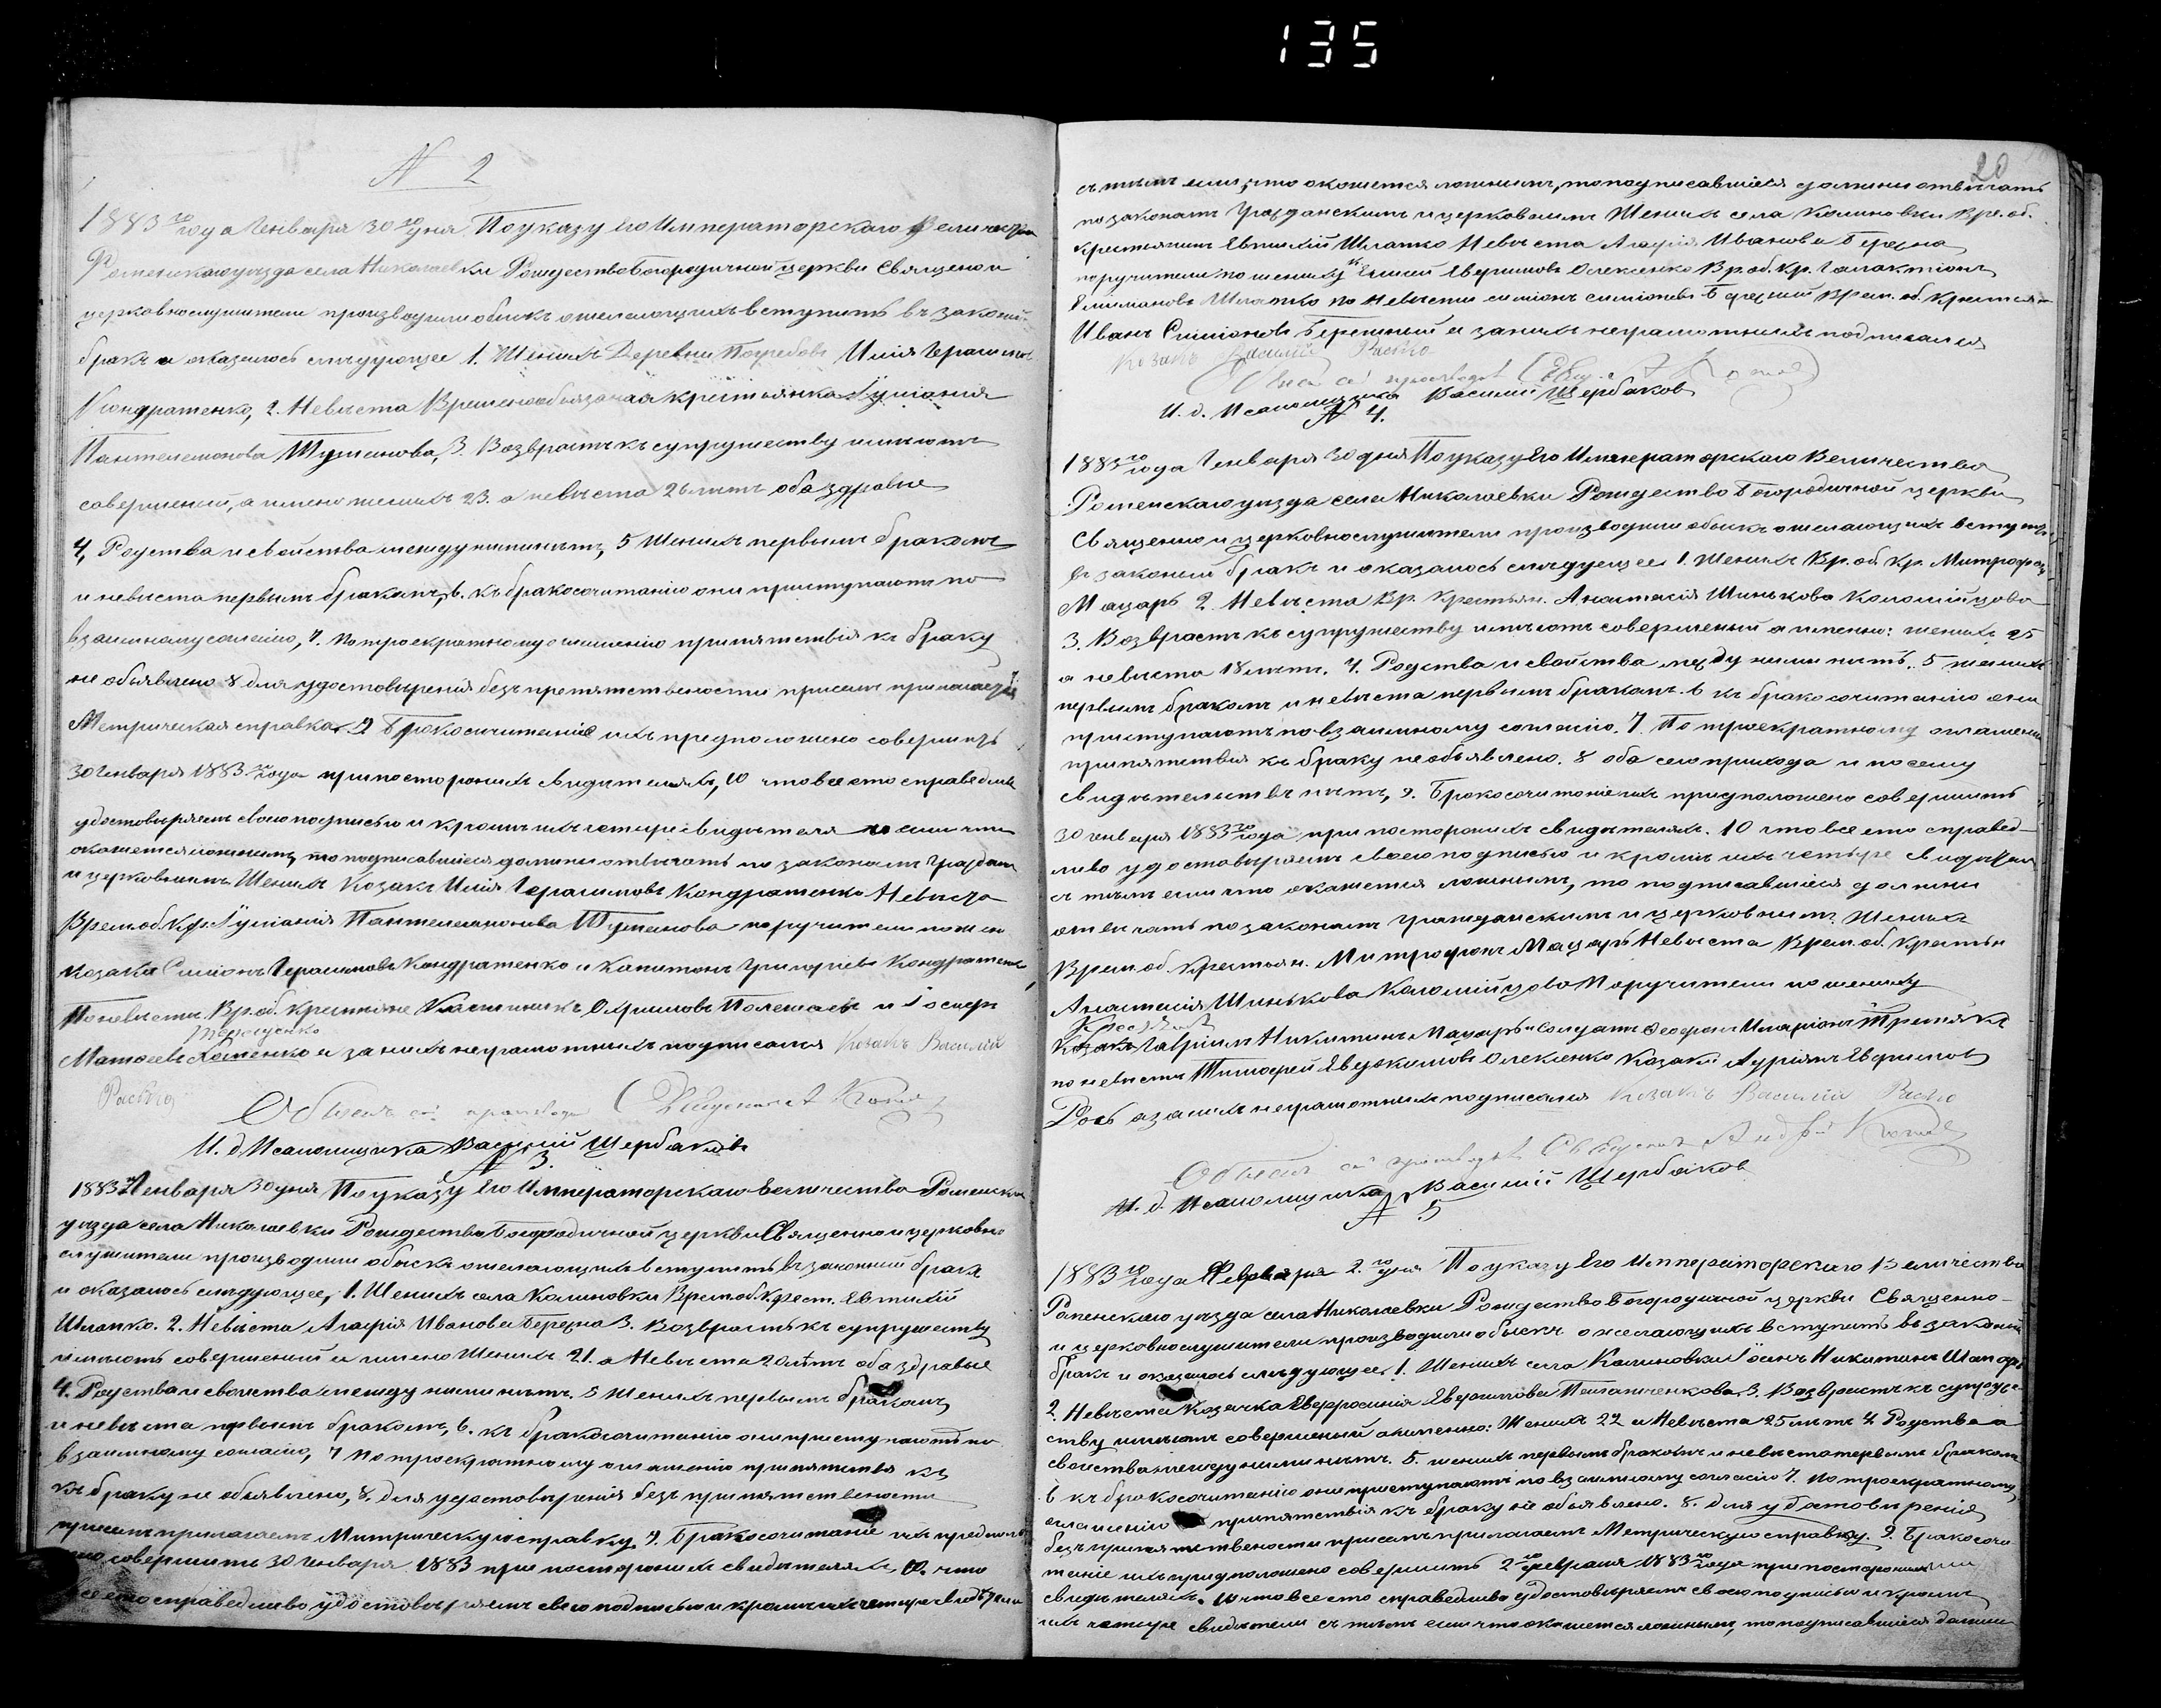 135
N 2
1883 го года Генваря 30 го дня По указу Его Императорскаго Величества
Роменскаго уезда села Николаевки Рождество Богородичной церкви Священно и
церковнослужители производили обыск о желающих вступить в законый
брак и оказалось следующее 1. Жених Деревни Погребов Илія Герасимов
Кондратенко, 2. Невеста Временнообязаная крестьянка Іуліанія
Пантелемонова Туманова, 3. Возврасть къ супружеству имеють
совершеный, а имено жених 23. а невеста 26 лѣтъ оба здравые
4, Родства и свойства между ними нѣтъ, 5 Женихъ первымъ бракомъ
и невѣста первымъ бракомъ, 6. къ бракосочитанію они приступають по
взаимному согласію, 7. По троекратному оглашению припятствія къ браку
не объявлено 8 для удостовѣренія безъпрепятствености присемъ прилогается
Метрическая справка. 9 Бракосочитаніе ихъ предположено совершить
30 Генваря 1883 го года при посторонихъ свидѣтеляхъ, 10 что все ето справедливо
удостовѣряемъ своею подписью и кромѣ ихъ четыре свидѣтеля если что
окажется ложнымъ, то подписавшіеся должны отвѣчать по законамъ Гражданс
и церковнымъ Женихъ Козакъ Илія Герасимовъ Кондратенко Невѣста
Врем. об. Кр. Іуліанія Пантелемонова Туманова поручители по жен
козаки Симіонъ Герасимовъ Кондратенко и Капитонъ Григоріевъ Кондратенк
По невѣсти Вр. об. крестьяне Ефримовъ и Іосифъ
Терещенко
Матвеевъ а за нихъ неграмотныхъ подписался Козакъ Василій
Расько
Обыскъ сей производилъ Священникъ
И. д. Псаломщика Василій Щербаковъ
N 3.
1883 Генваря 30 дня По указу Его Императорскаго величества Роменска
уезда села Николаевки Рождество Богородичной церкви Священно и церковно
служители производили обыскъ о желающихъ вступить въ законный бракъ
и оказалось слѣдующее, 1. Женихъ села Калиновки Врем. об. Крест. Евтихій
Шлапко. 2. Невѣста Агафія Иванова Бережна 3. Возврасть къ супружеству
имѣютъ совершеный а имено Женихъ 21. а Невѣста 20 лѣтъ оба здравые
4. Родства и своиства между ними нѣтъ. 5 Женихъ первымъ бракомъ
и невѣста первымъ бракомъ, 6. къ бракосочитанію они приступаютъ по
взаимному согласію, 7 По троекратному оглашению припятствія къ
къ браку не объявлено, 8. для удостовѣренія безъ припятствености
присемъ прилагаемъ Митрическую справку 9. Бракосочитаніе ихъ предполо
совершить 30 Генваря 1883 при посторонихъ свидѣтеляхъ, 10. что
все ето справедливо удостовѣряемъ своею подписью и кромѣ ихъ четыре свидѣтеля
20
съ тѣмъ если что окажется ложнымъ, то подписавшіеся должны отвѣчать
по законамъ Гражданскимъ и церковнымъ Женихъ села Калиновки Вре. об.
крестьянинъ Евтихій Шлапко Невѣста Агафія Иванова Бережна
поручители по жениху Олексенко Вр. об. Кр. Галактіонъ
Шлапко по Невѣсти симіонъ симіоновъ Бережный Врем. об. Крестьян
Иванъ Симіоновъ Бережный а за нихъ неграмотныхъ подписался
Козакъ Василій Расько
Обыскъ сей производилъ
И. д. Псаломщика Василій Щербаковъ
N 4.
1883 го года Генваря 30 дня По указу Его Императорскаго Величества
Роменскаго уезда села Николаевки Рождество Богородичной церкви
Священно и церковнослужители производили обыскъ о желающихъ вступить
въ законый бракъ и оказалось слѣдующее 1. Женихъ Вр. об. Кр. Митрофанъ
Мацарь 2. Невѣста Вр. Крестьян. Анастасія Шинькова Коломійцова
3. Возврасть къ супружеству имѣютъ совершеный а именно: женихъ 25
а невѣста 18 лѣтъ. 4. Родства и свойства между ними нѣтъ. 5 женихъ
первымъ бракомъ и невѣста первымъ бракомъ 6 къ бракосочитанію они
приступаютъ по взаимному согласію. 7. По троекратному оглашению
припятствія къ браку не объявлено. 8 оба сего прихода и по сему
свидѣтельствъ нѣтъ, 9. Бракосочитаніе ихъ придположено совершить
30 генваря 1883 го года при посторонихъ свидѣтеляхъ. 10 что все ето справед-
ливо удостовѣряемъ своею подписью и кромѣ ихъ четыре свидѣтеля
съ тѣмъ если что окажется ложнымъ, то подписавшіеся должны
отвѣчать по законамъ гражданскимъ и церковнымъ. Женихъ
Врем. об. Крестьян. Митрофанъ Мацарь Невѣста Врем. об. Крестьян
Анастасія Шинькова Коломійцова Поручители по жениху
Гавріилъ Никитинъ Мацарь и Солдатъ Феофанъ Иларіонъ Третякъ
по невѣсти Тимофей Евдокимовъ Олексенко Козаки Андріянъ Ефримовъ
Рось а за нихъ неграмотныхъ подписался Козакъ Василій Расько
Обыскъ сей производилъ Священникъ Андрей
И. д. Псаломщика Василій Щербаковъ
N 5
1883 го года Февраря 2. го дня По указу Его Императорскаго Величества
Роменскаго уезда села Николаевки Рождество Богородичной церкви Священно-
и церковнослужители производили обыскъ о желающихъ вступить въ законый
бракъ и оказалось слѣдующее 1. Женихъ села Калиновки Никитинъ
2. Невѣста Козачка Евфросинія Евфимова 3. Возврасть къ супруже-
ству имѣютъ совершеный а именно: Женихъ 22 а Невѣста 25 лѣтъ 4 Родства а
свойства между ними нѣтъ. 5. женихъ первымъ бракомъ и невѣста первымъ бракомъ
6 къ бракосочитанію они приступаютъ по взаимному согласію 7. По троекратному
оглашению припятствія къ браку не объявлено. 8. для удостовѣренія
безъприпятствености присемъ прилагаемъ Метрическую справку. 9. Бракосочи
таніе ихъ придположено совершить 2 го февраля 1883 го года при посторонихъ
свидѣтеляхъ. 10 что все ето справедливо удостовѣряемъ своею подписью и кромѣ
ихъ четыре свидѣтели съ тѣмъ если что окажется ложнымъ, то подписавшіеся должны